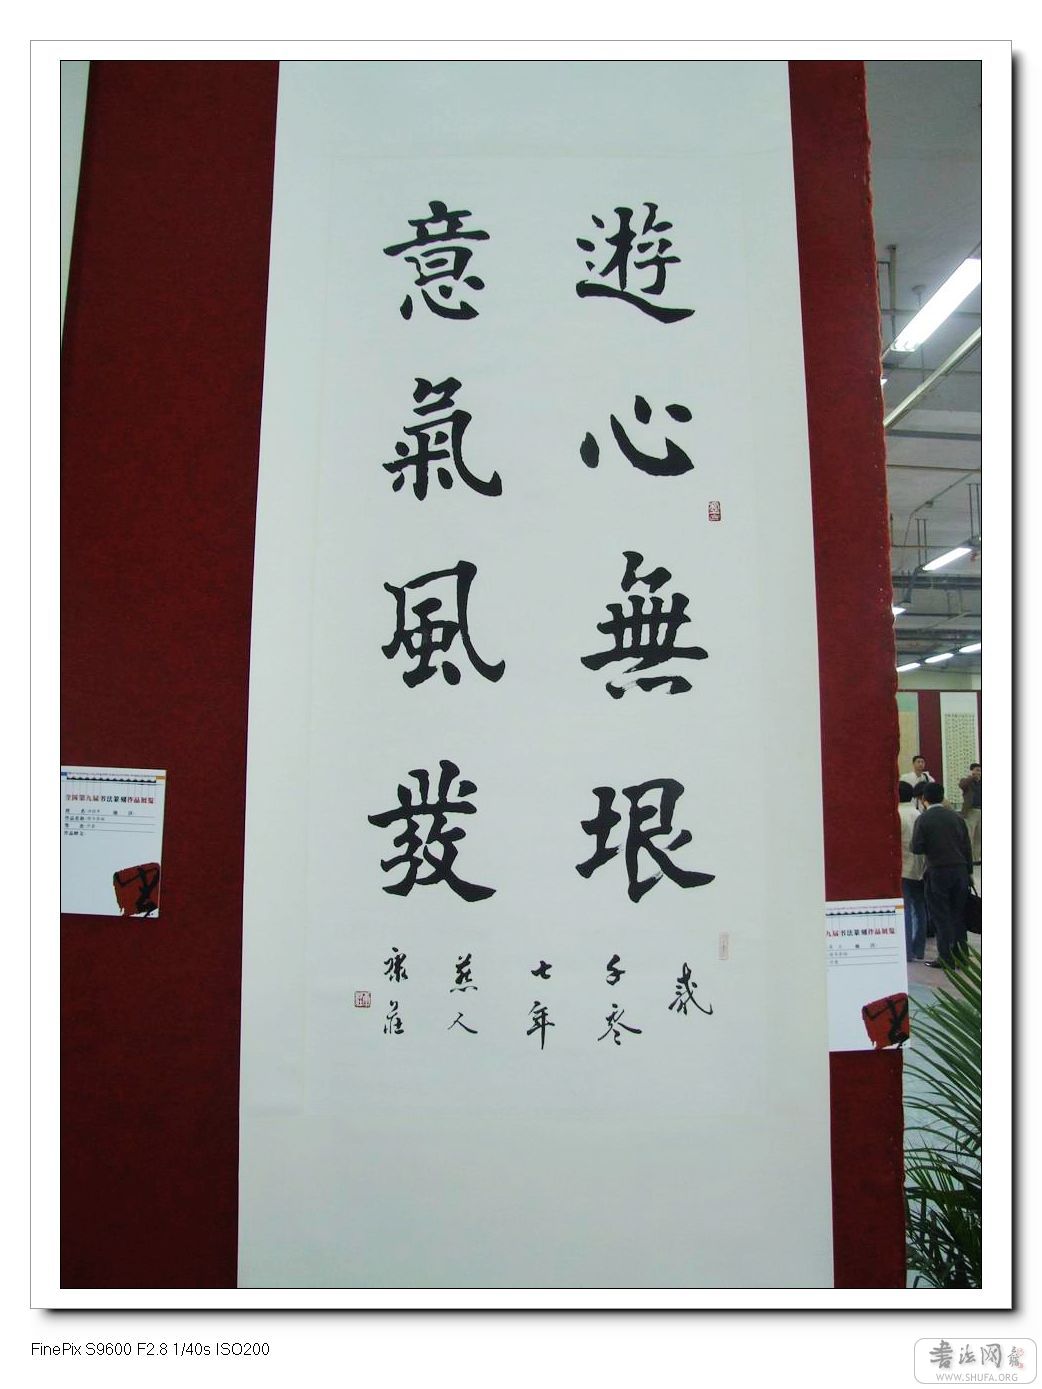 遊心無垠
意氣風發
歲
千零
七年
燕人
康莊
全国第九届书法篆刻作品展览
九届书法篆刻作品展览
FinePix S9600 F2.8 1/40s ISO200
书法网
WWW.SHUFA.ORG